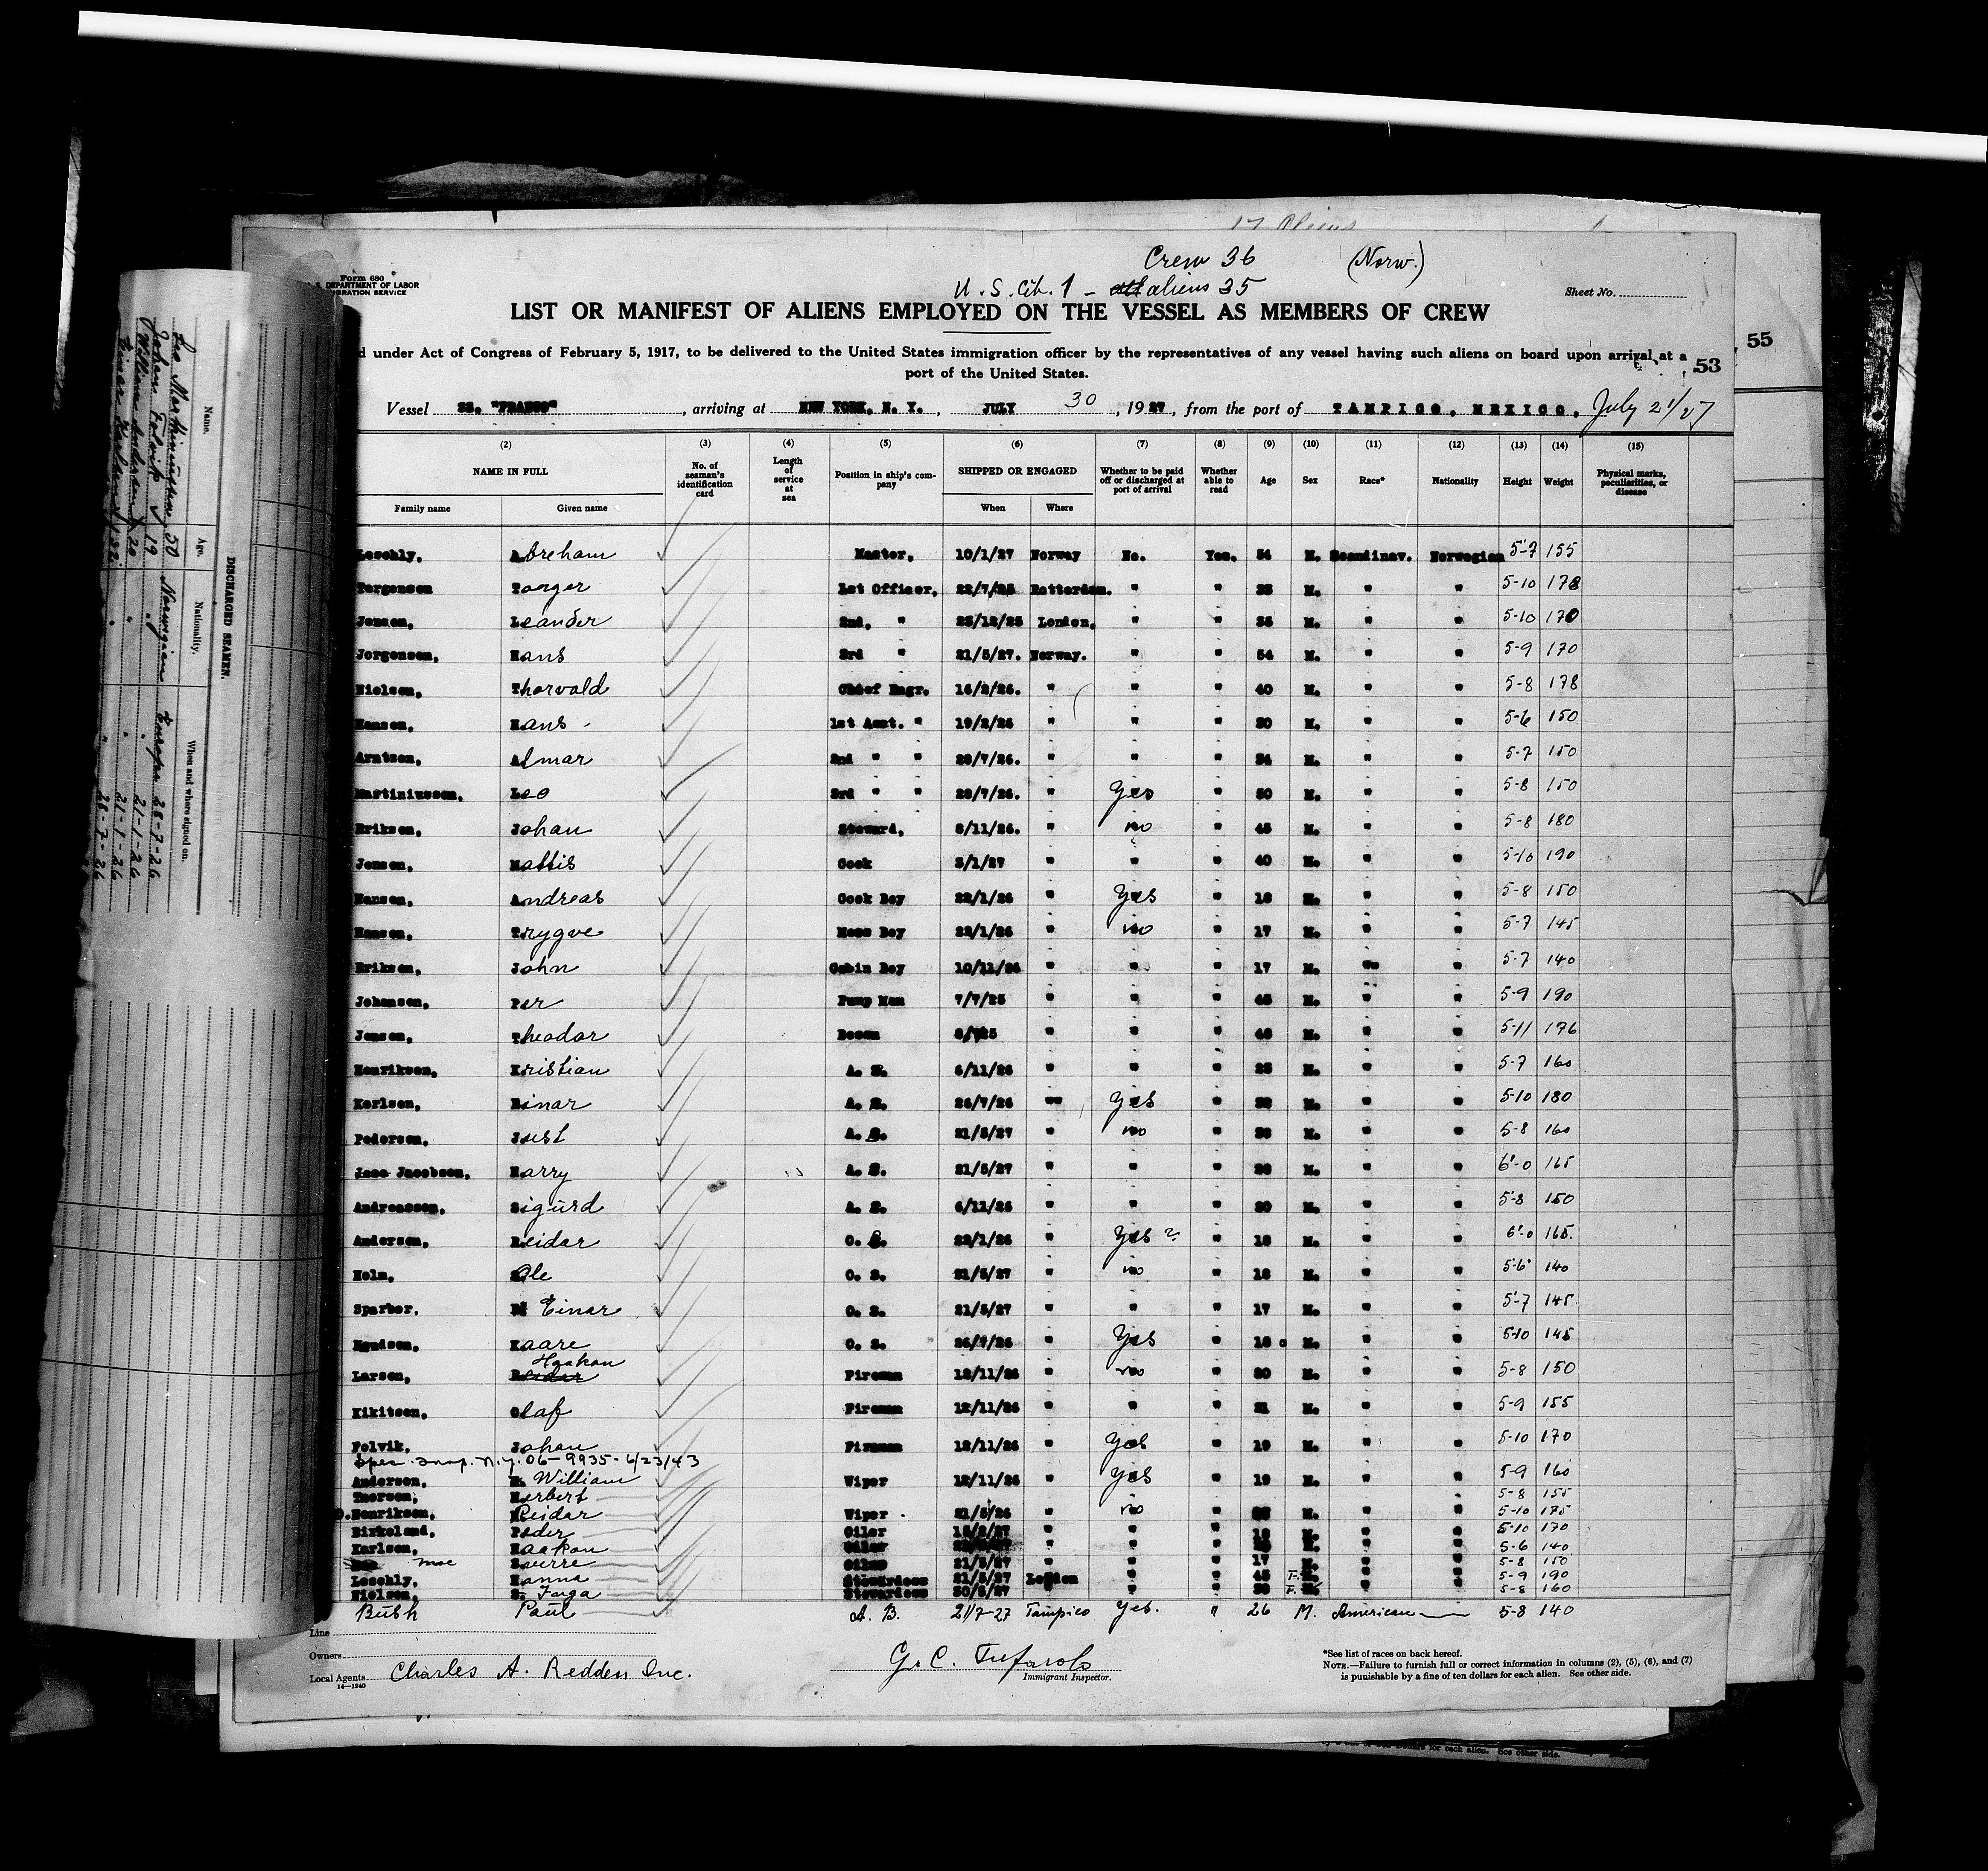 17 Aliens
Crew 36 (Norw.)
U. S. Cit. 1 - aliens 35
Form 680
U. S. DEPARTMENT OF LABOR
IMMIGRATION SERVICE
Sheet No.
LIST OR MANIFEST OF ALIENS EMPLOYED ON THE VESSEL AS MEMBERS OF CREW
55
d under Act of Congress of February 5, 1917, to be delivered to the United States immigration officer by the representatives of any vessel having such aliens on board upon arrival at a
port of the United States.
53
Vessel SS. , arriving at NEW YORK, N. Y., JULY 30, 1927, from the port of TAMPICO, MEXICO, July 21/27
(2) (3) (4) (5) (6) (7) (8) (9) (10) (11) (12) (13) (14) (15)
NAME IN FULL No. of seaman's identification card Length of service at sea Position in ship's company SHIPPED OR ENGAGED Whether to be paid off or discharged at port of arrival Whether able to read Age Sex Race* Nationality Height Weight Physical marks, peculiarities, or disease
Family name Given name When Where
Leschly, Abreham Master, 10/1/27 Norway No. Yes. 54 M. Scandinav. Norwegian 5-7 155
Torgensen Torger 1st Officer, 22/7/25 Rotterdam. " " 35 M. " " 5-10 178
Jensen, Leander 2nd, " 25/12/25 London, " " 35 M. " " 5-10 170
Jorgensen, Hans 3rd " 21/5/27. Norway. " " 54 M. " " 5-9 170
Nielsen, Thorvald Chief Engr. 16/2/26. " " " 40 M. " " 5-8 178
Hansen, Hans 1st Asst. " 19/2/26 " " " 30 M. " " 5-6 150
Arntsen, Almar 2nd " " 28/7/26. " " " 34 M. " " 5-7 150
Martiniussen, Leo 3rd " " 28/7/26. " Yes " 50 M. " " 5-8 150
Eriksen, Johan Steward, 8/11/26. " no " 45 M. " " 5-8 180
Jensen, Mattis Cook 5/1/27 " " " 40 M. " " 5-10 190
Hansen, Andreas Cook Boy 22/1/26 " Yes " 18 M. " " 5-8 150
Hansen, Trygve Mess Boy 22/1/26 " no " 17 M. " " 5-7 145
Eriksen, John Cabin Boy 10/11/26 " " " 17 M. " " 5-7 140
Johansen, Per Pump Man 7/7/25 " " " 45 M. " " 5-9 190
Jensen, Theodor Bosun " " " 46 M. " " 5-11 176
Henriksen, Kristian A. S. 6/11/26 " " " 25 M. " " 5-7 160
Karlsen, Einar A. S. 26/7/26 " Yes " M. " " 5-10 180
Pedersen, Just A. S. 21/5/27 " no " M. " " 5-8 160
Jacobsen, Harry A. S. 21/5/27 " " " M. " " 6'-0 165
Andreassen, Sigurd A. S. 6/11/26 " " " 20 M. " " 5'-8 150
Andersen, Reidar O. S. 22/1/26 " Yes ? " 18 M. " " 6'-0 165.
Holm, Ole O. S. 21/5/27 " no " 18 M. " " 5-6 140
Sparber, Einar O. S. 21/5/27 " " " 17 M. " " 5'-7 145
Knudsen, Kaare O. S. 26/7/26 " Yes " 18 M. " " 5-10 145
Haakon
Larsen, Reidar Fireman 12/11/26 " no " 20 M. " " 5-8 150
Kikitsen, Olaf Fireman 12/11/26 " " " 21 M. " " 5-9 155
Folvik, Johan Fireman 12/11/26 " Yes " 19 M. " " 5-10 170
Spec. insp. N.Y. 06-9935-6/23/43
Andersen, William Wiper 12/11/26 " Yes " 19 M. " " 5-9 160
Thorsen, Herbert 5-8 155
Henriksen, Reidar Wiper 21/5/26 " no " M. " " 5-10 175
Birkeland, Peder Oiler " " " 18 M. " " 5-10 170
Karlsen, Haakon Oiler " " " M. " " 5-6 140
Moe Sverre Oiler 21/5/27 " " " 17 M. " " 5-8 150
Leschly, Hanna Stewardess 21/5/27 London " " 45 F. " " 5-9 190
Nielsen, S. Farga Stewardess 30/5/27 " " " 30 F. " " 5-8 160
Bush Paul A. B. 21/7-27 Tampico Yes. " 26 M. American 5-8 140
Line
Owners
Local Agents Charles A. Redden Inc.
14-1240
Immigrant Inspector.
*See list of races on back hereof.
NOTE.—Failure to furnish full or correct information in columns (2), (5), (6), and (7)
is punishable by a fine of ten dollars for each alien. See other side.
DISCHARGED SEAMEN.
Name. Age. Nationality. When and where signed on.
Leo Marthiniussen 50 Norwegian Europe 28-7-26
Johan Folvik 19 " " 21-1-26
William Andersen 20 " " 21-1-26
Einar Karlsen " " 28-7-26